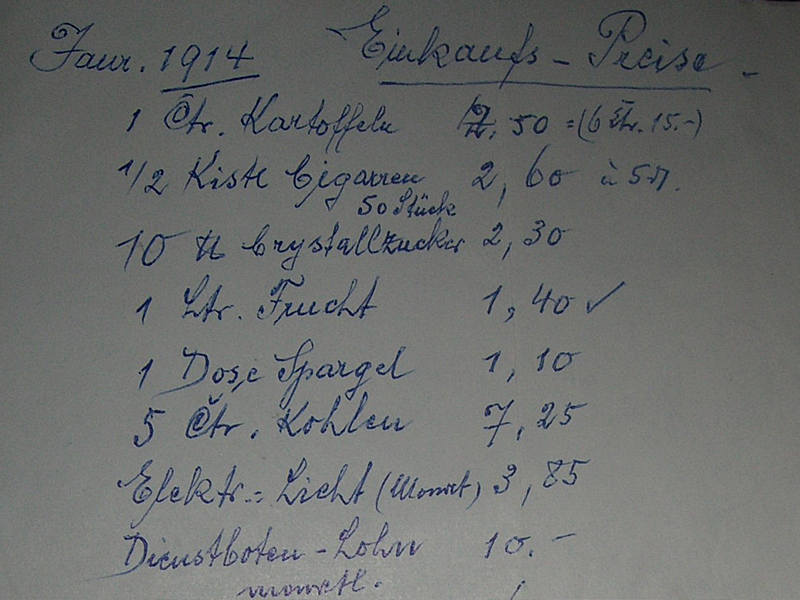 Janr. 1914 Einkaufs - Preise -
1 Ctr. Kartoffeln 2.50 = (6 Ctr. 15.-)
1/2 Kiste Cigarren 2,60 à 5₰.
50 Stück
10 ℔ Crystallzucker 2,30
1 Ltr. Frucht 1,40 ✓
1 Dose Spargel 1,10
5 Ctr. Kohlen 7,25
Elektr.= Licht (Monat) 3,85
Dienstboten - Lohn 10.-
monatl.